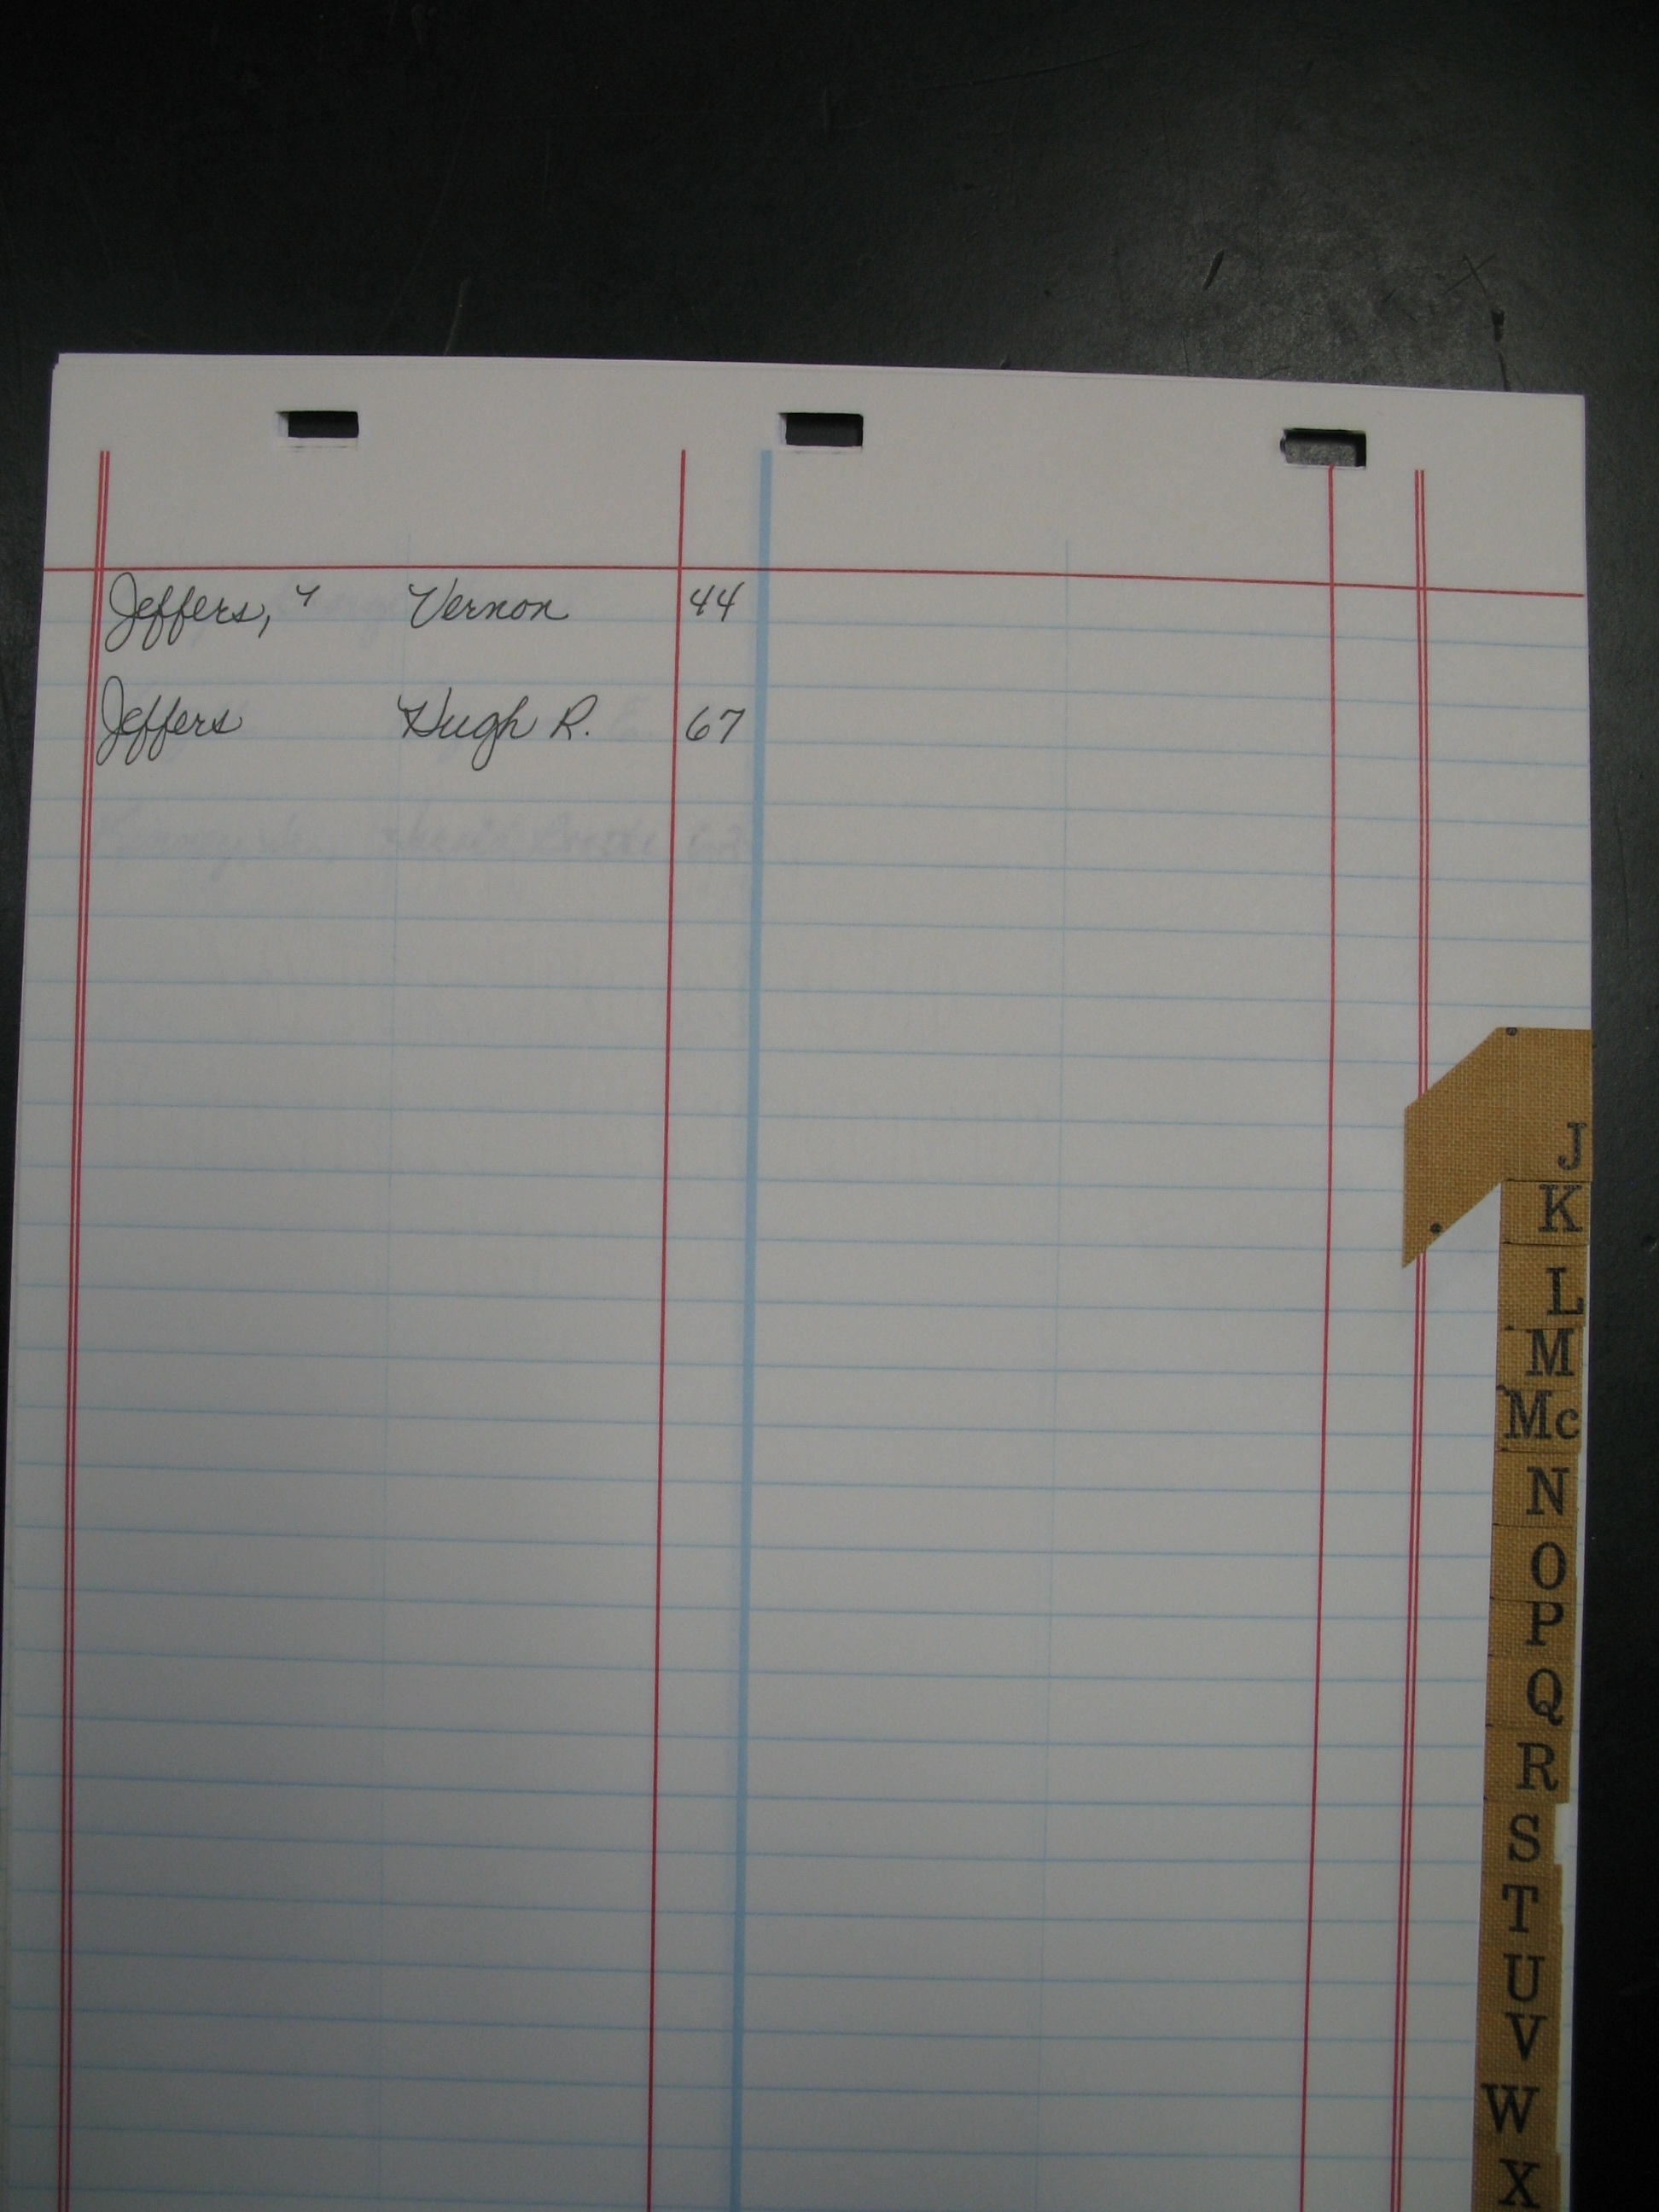 Jeffers, Vernon 44
Jeffers Hugh R. 67
J
K
L
M
Mc
N
O
P
Q
R
S
T
U
V
W
X